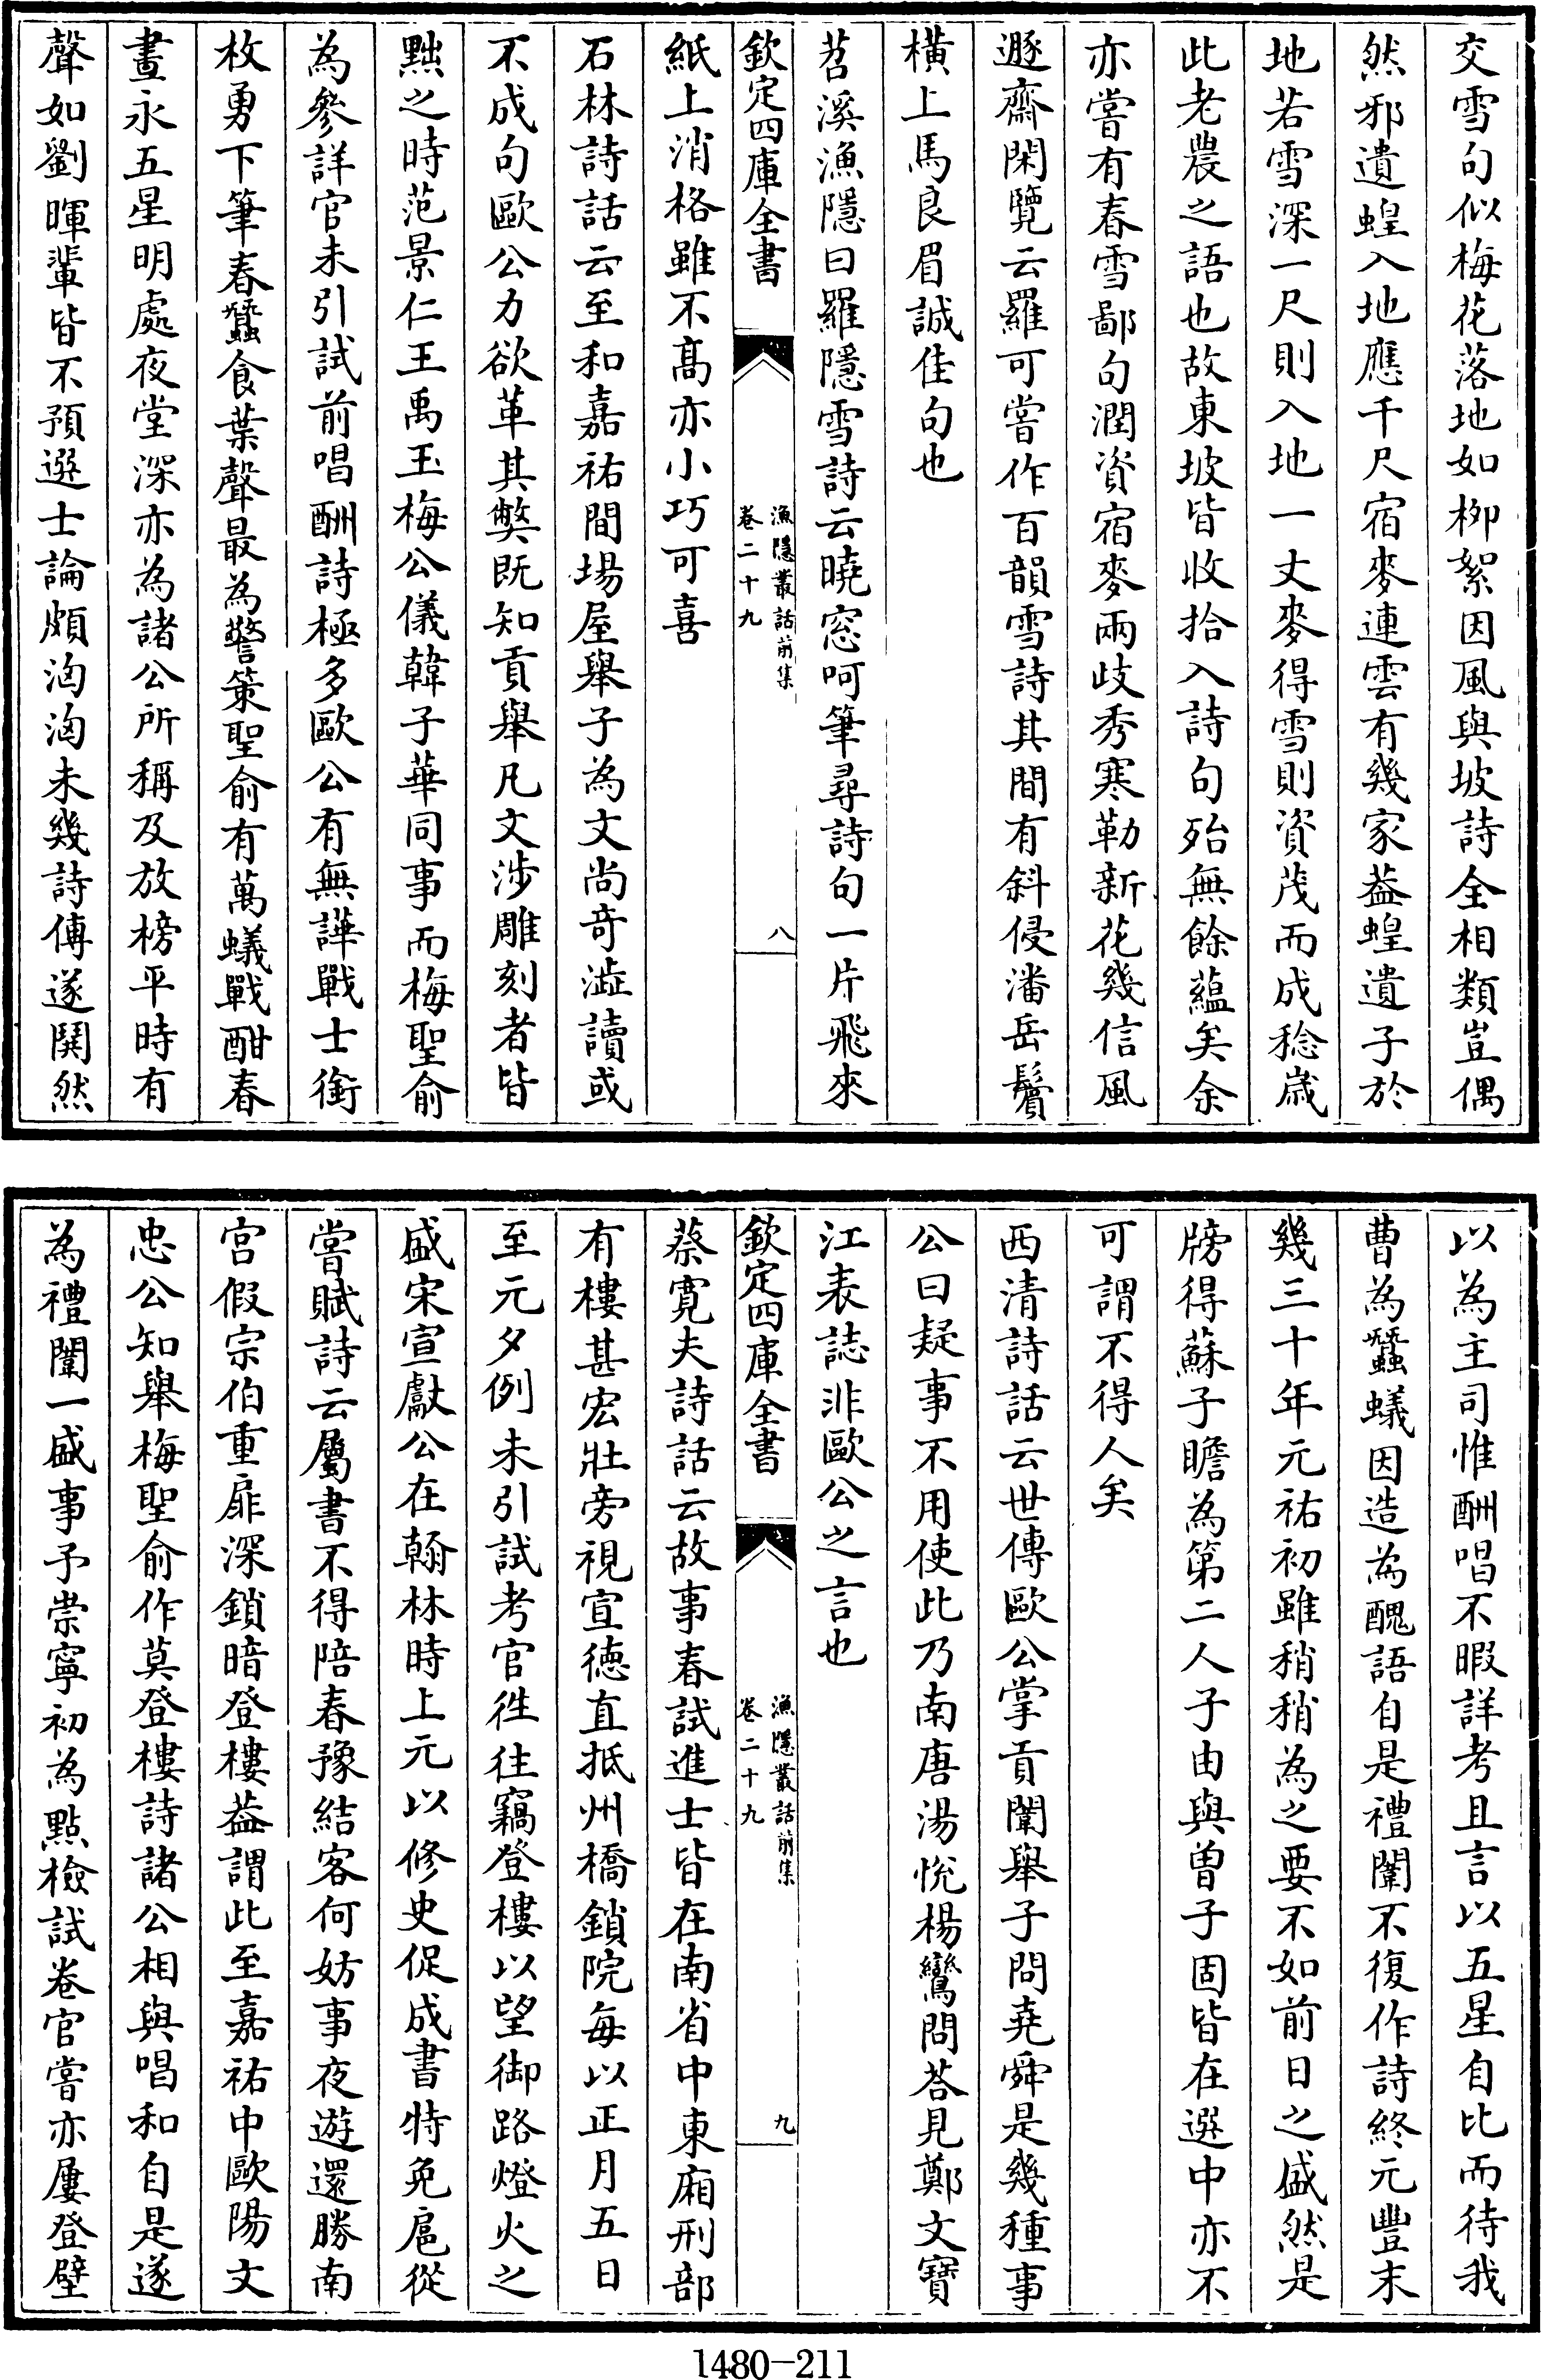 交雪句似梅花落地如柳絮因風與坡詩全相類豈偶
然邪遺蝗入地應千尺宿麥連雲有幾家葢蝗遺子於
地若雪深一尺則入地一丈麥得雪則資茂而成稔歲
此老農之語也故東坡皆收拾入詩句殆無餘蘊矣余
亦嘗有春雪鄙句潤資宿麥兩歧秀寒勒新花幾信風
遯齋閑覽云羅可嘗作百韻雪詩其間有斜侵潘岳鬢
橫上馬良眉誠佳句也
苕溪漁隱曰羅隱雪詩云曉窓呵筆尋詩句一片飛來
欽定四庫全書
漁隱叢話前集
卷二十九
八
紙上消格雖不髙亦小巧可喜
石林詩話云至和嘉祐間場屋舉子為文尚竒澁讀或
不成句歐公力欲革其弊既知貢舉凡文涉雕刻者皆
黜之時范景仁王禹玉梅公儀韓子華同事而梅聖俞
為參詳官未引試前唱酬詩極多歐公有無譁戰士銜
枚勇下筆春蠶食葉聲最為警策聖俞有萬蟻戰酣春
晝永五星明處夜堂深亦為諸公所稱及放榜平時有
聲如劉暉輩皆不預選士論頗洶洶未幾詩傳遂鬨然
以為主司惟酬唱不暇詳考且言以五星自比而待我
曹為蠶蟻因造為醜語自是禮闈不復作詩終元豐末
幾三十年元祐初雖稍稍為之要不如前日之盛然是
牓得蘇子瞻為第二人子由與曾子固皆在選中亦不
可謂不得人矣
西清詩話云世傳歐公掌貢闈舉子問堯舜是幾種事
公曰疑事不用使此乃南唐湯悅楊鸞問荅見鄭文寶
江表誌非歐公之言也
欽定四庫全書
漁隱叢話前集
卷二十九
九
蔡寛夫詩話云故事春試進士皆在南省中東廂刑部
有樓甚宏壯旁視宣徳直抵州橋鎖院每以正月五日
至元夕例未引試考官徃往竊登樓以望御路燈火之
盛宋宣獻公在翰林時上元以修史促成書特免扈從
嘗賦詩云屬書不得陪春豫結客何妨事夜遊還勝南
宮假宗伯重扉深鎖暗登樓葢謂此至嘉祐中歐陽文
忠公知舉梅聖俞作莫登樓詩諸公相與唱和自是遂
為禮闈一盛事予崇寧初為點檢試卷官嘗亦屢登壁
1480-211